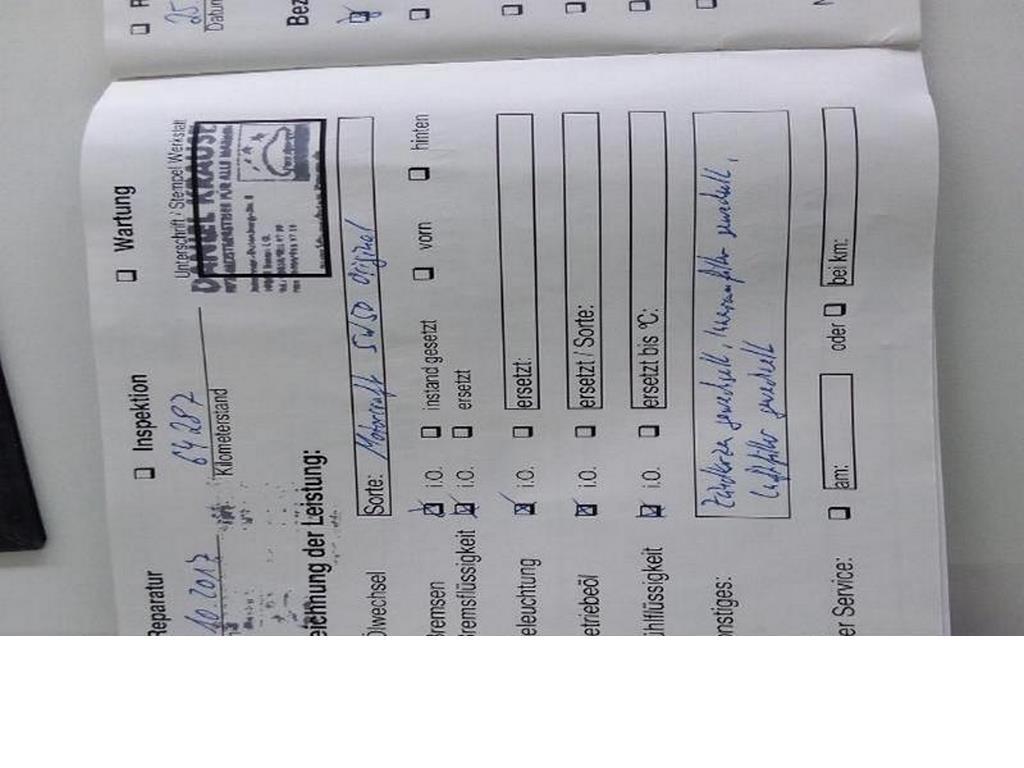 Reparatur
Inspektion
Wartung
10.2017
64 287
Kilometerstand
Unterschrift / Stempel Werkstatt
DANIEL KRAUSE
KFZ-MEISTERBETRIEB FÜR ALLE MARKEN
eichnung der Leistung:
Ölwechsel
Sorte: Motorcraft 5W30 original
Bremsen i.O. instand gesetzt vorn hinten
Bremsflüssigkeit i.O. ersetzt
eleuchtung i.O. ersetzt:
etriebeöl i.O. ersetzt / Sorte:
ühlflüssigkeit i.O. ersetzt bis °C:
onstiges: Zündkerzen gewechselt, Innenraumfilter gewechselt,
Luftfilter gewechselt
er Service: am: oder bei km:
R
25
Datum
Bez